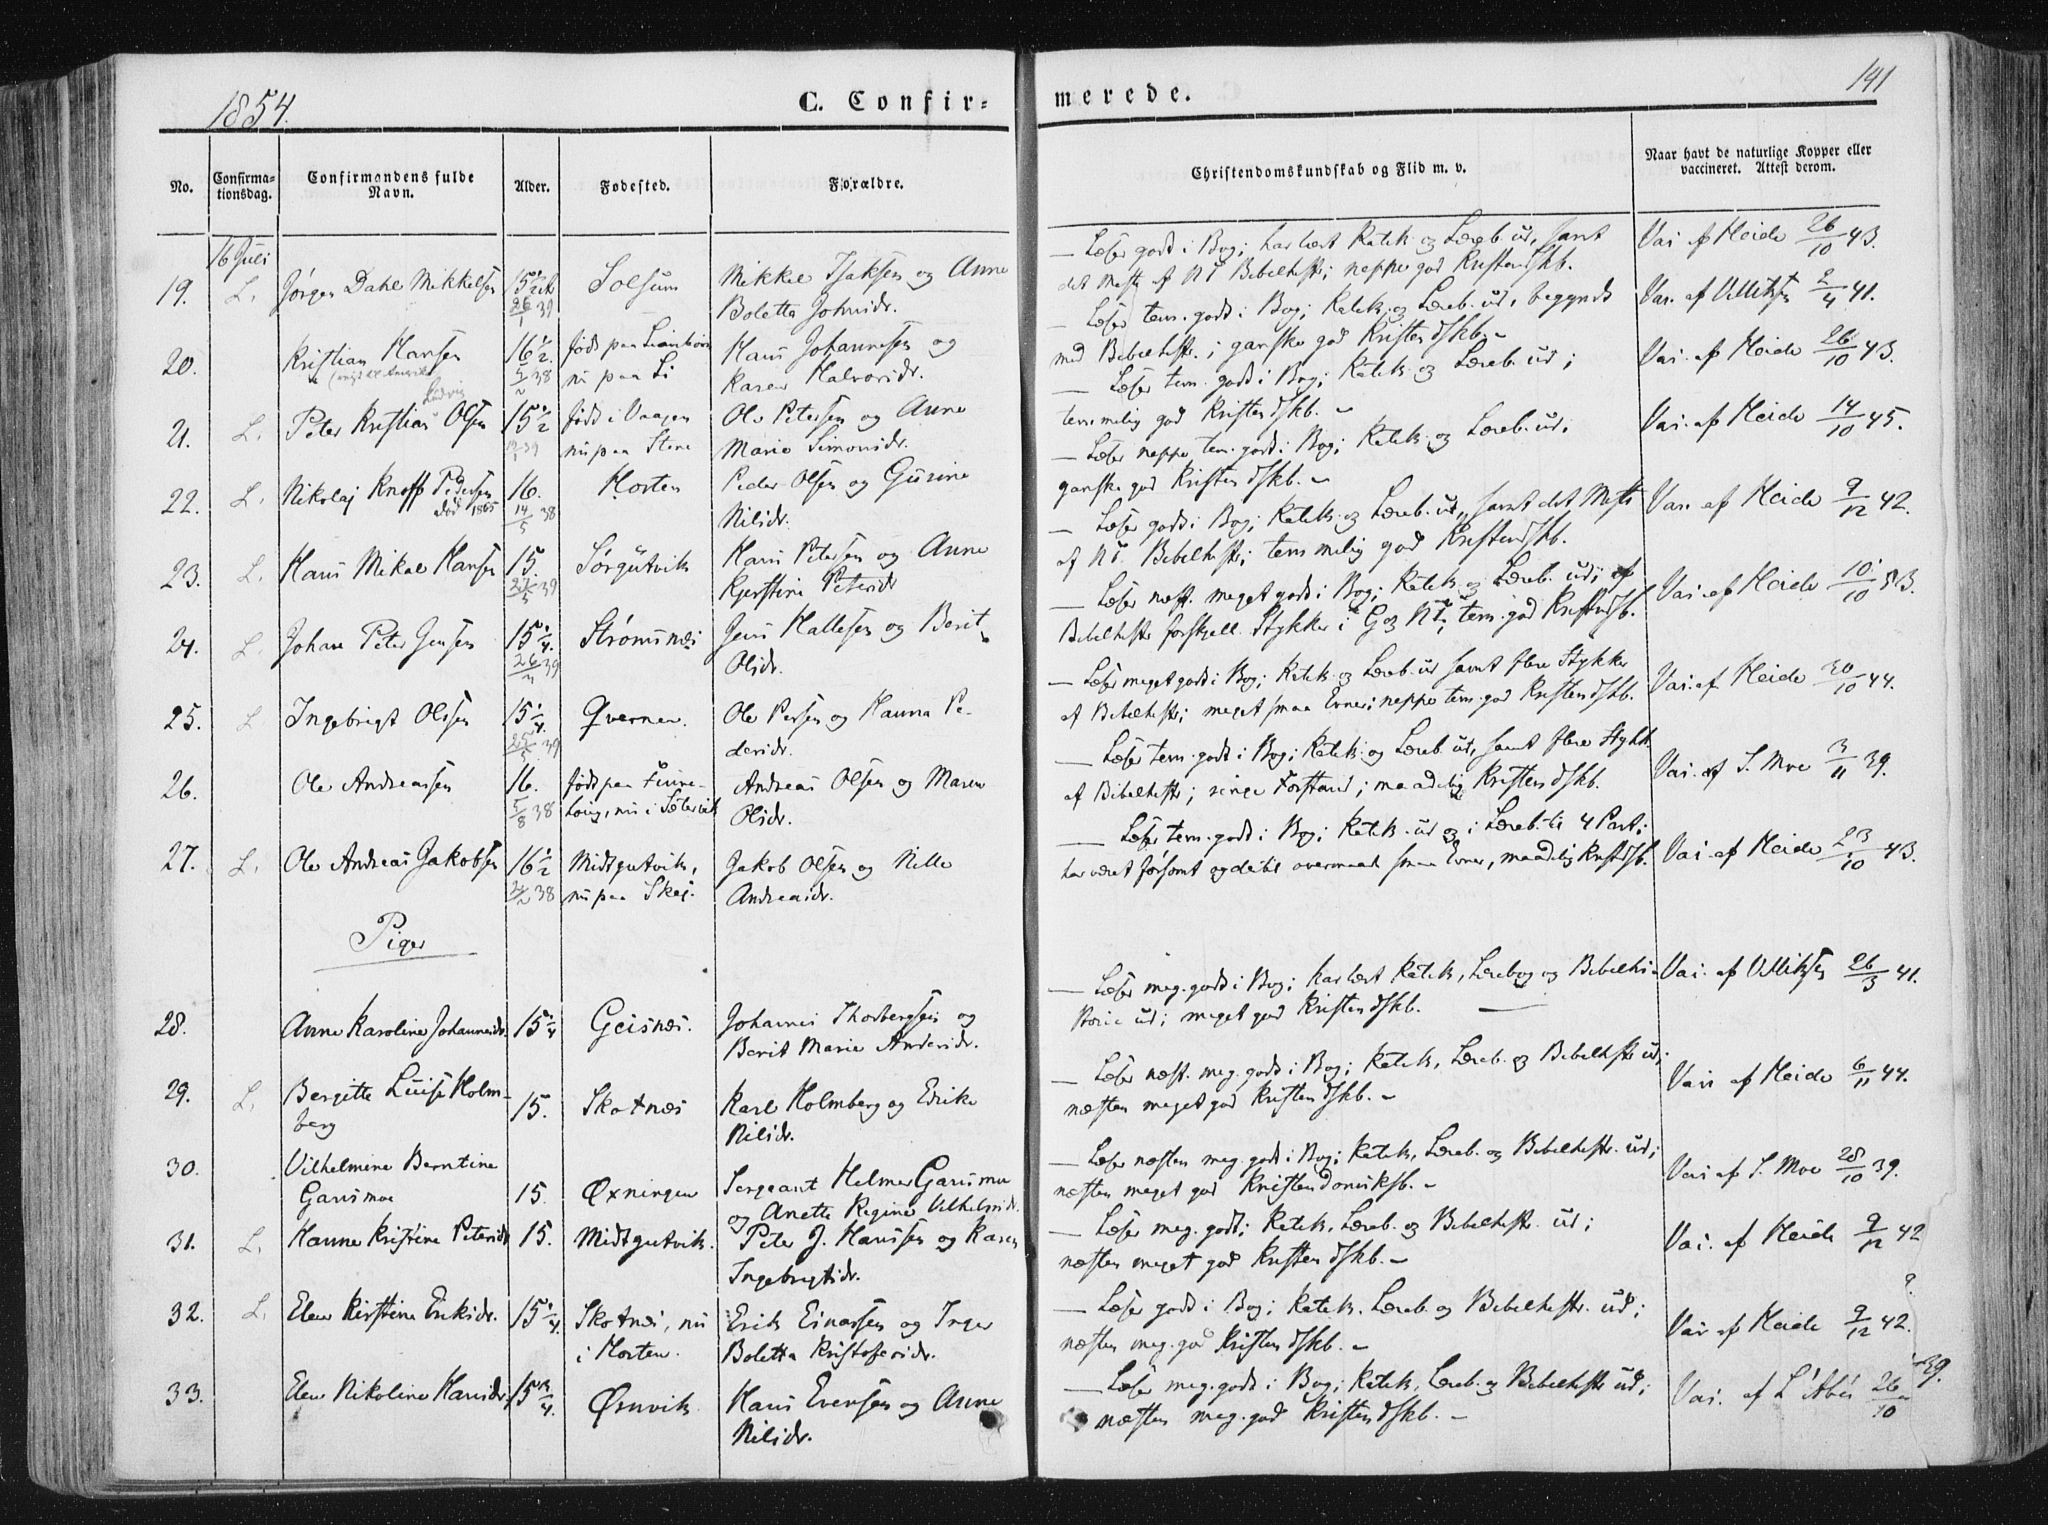 1854.
C. Confir-
merede.
141
No.
Confirma-
tionsdag.
Confirmandens fulde
Navn.
Alder.
Fødested.
Forældre.
Christendomskundskab og Flid m. v.
Naar havt de naturlige Kopper eller
vaccineret. Attest derom.
16 Juli
19. L. Jørgen Dahl Mikkelsen 15 1/2 Solsum Mikkel Isaksen og Anne
26/1 39 Boletta Johnsdr.
— Læser godt i Bog; har lært Katek. og Læreb. ud, samt
det Meste af NT Bibelhistr; neppe god Kristendskb.
Vac. af Heide 26/10 43.
20. Kristian Hansen 16 1/2. født paa
5/2 38 nu paa Li
Hans Johannesen og
Karen Halvorsdr.
— Læser tem. godt i Bog; Katek. og Læreb. ud, begyndt
med Bibelhistr.; ganske god Kristendskb. –
Vac. af Ulliksen 2/4 41.
21. L. Peter Kristian Ludvig Olsen 15 1/2 født i Vaagen
nu paa Stene
Ole Petersen og Anne
Marie Simonsdr.
— Læser tem. godt i Bog; Katek. og Læreb. ud;
temmelig god Kristendskb. –
Vac. af Heide 26/10 43.
22. L. Nikolaj Knoff Pedersen 16. Horten Peder Olsen og Gurine
død 1865 14/5 38 Nilsdr.
— Læser neppe tem. godt i Bog; Katek. og Læreb. ud;
ganske god Kristendskb. –
Vac. af Heide 14/10 45.
23. L. Hans Mikal Hansen 15. Sørgutvik Hans Petersen og Anne
27/5 39 Kjerstine Petersdr
— Læser godt i Bog; Katek. og Læreb. ud, samt det Meste
af NT. Bibelhistr; temmelig god Kristendskb.
Vac. af Heide 9/12 42.
24. L. Johan Peter Jensen 15 1/4. Strømsnæs Jens Hallesen og Berit
39 Olsdr.
— Læser næst. meget godt i Bog; Katek. og Læreb. ud; af
Bibelhistr forskjell. Stykker i G og NT; tem. god Kristendskb.
Vac. af Heide 10/10 53.
25. L Ingebrigt Olsen 15 1/4. Qvernen. Ole Persen og Hanna Pe-
25/5 39 dersdr.
— Læser meget godt i Bog; Katek. og Læreb. ud samt flere Stykker
af Bibelhistr; meget smaa Evner; neppe tem. god Kristendskb.
Vac. af Heide 30/10 44.
26. Ole Andreassen 16. født paa Finne-
5/8 38
Andreas Olsen og Maren
Olsdr.
— Læser tem. godt i Bog; Katek. og Læreb ud, samt flere Stykk.
af Bibelhistr; ringe Forstand; maadelig Kristendskb.
Vac. af S. Moe 3/11 39.
27. L. Ole Andreas Jakobsen 16 1/2 Midtgutvik, Jakob Olsen og Nille
38 nu paa Skej. Andreasdr.
— Læser tem. godt i Bog; Katek. ud og i Læreb. til 4 Part;
har været forsømt og dertil overmaade smaa Evner, maadelig Kristdskb.
Vac. af Heide 23/10 43.
Piger
28. Anne Karoline Johannesdr. 15 1/4 Geisnæs. Johannes Thorbergsen og
Berit Marie Andersdr.
— Læser meg. godt i Bog; har lært Katek., Lærebog og Bibelhi-
storie ud; meget god Kristendskb.
Vac. af Ulliksen 26/3 41.
29. L. Bergitte Luise Holm-
berg 15. Skotnæs Karl Holmberg og Erike
Nilsdr.
— Læser næst. meg. godt i Bog; Katek., Læreb. og Bibelhistr ud;
næsten meget god Kristendskb. –
Vac. af Heide 6/11 44.
30. Vilhelmine Berntine
Garnsmoe 15. Øxningen Sergeant Helmer Garnsmoe
og Anette Regine Vilhelmsdr.
— Læser næsten meg. godt i Bog; Katek., Læreb. og Bibelhistr. ud;
næsten meget god Kristendomsksb. –
Vac. af S. Moe 28/10 39.
31. L. Hanne Kristine Petersdr 15. Midtgutvik. Peter J. Hanssen og Karen
Ingebrigtsdr.
— Læser meg. godt; Katek., Læreb. og Bibelhistr. ud;
næsten meget god Kristendskb. –
Vac. af Heide 9/12 42
32. L. Elen Kirstine Eriksdr. 15 1/4. Skotnæs, nu
i Horten. Erik Einarsen og Inger
Boletta Kristofersdr.
— Læser godt i Bog; Katek. Læreb. og Bibelhistr. ud;
næsten meg. god Kristendskb. –
Vac. af Heide 9/12 42. ?
33. Elen Nikoline Hansdr. 15 3/4. Ørnvik Hans Evensen og Anne
Nilsdr.
— Læser meg. godt i Bog; Katek., Læreb. og Bibelhistr ud;
næsten meg. god Kristendskb. –
Vac. af L'Abée 26/10 39.